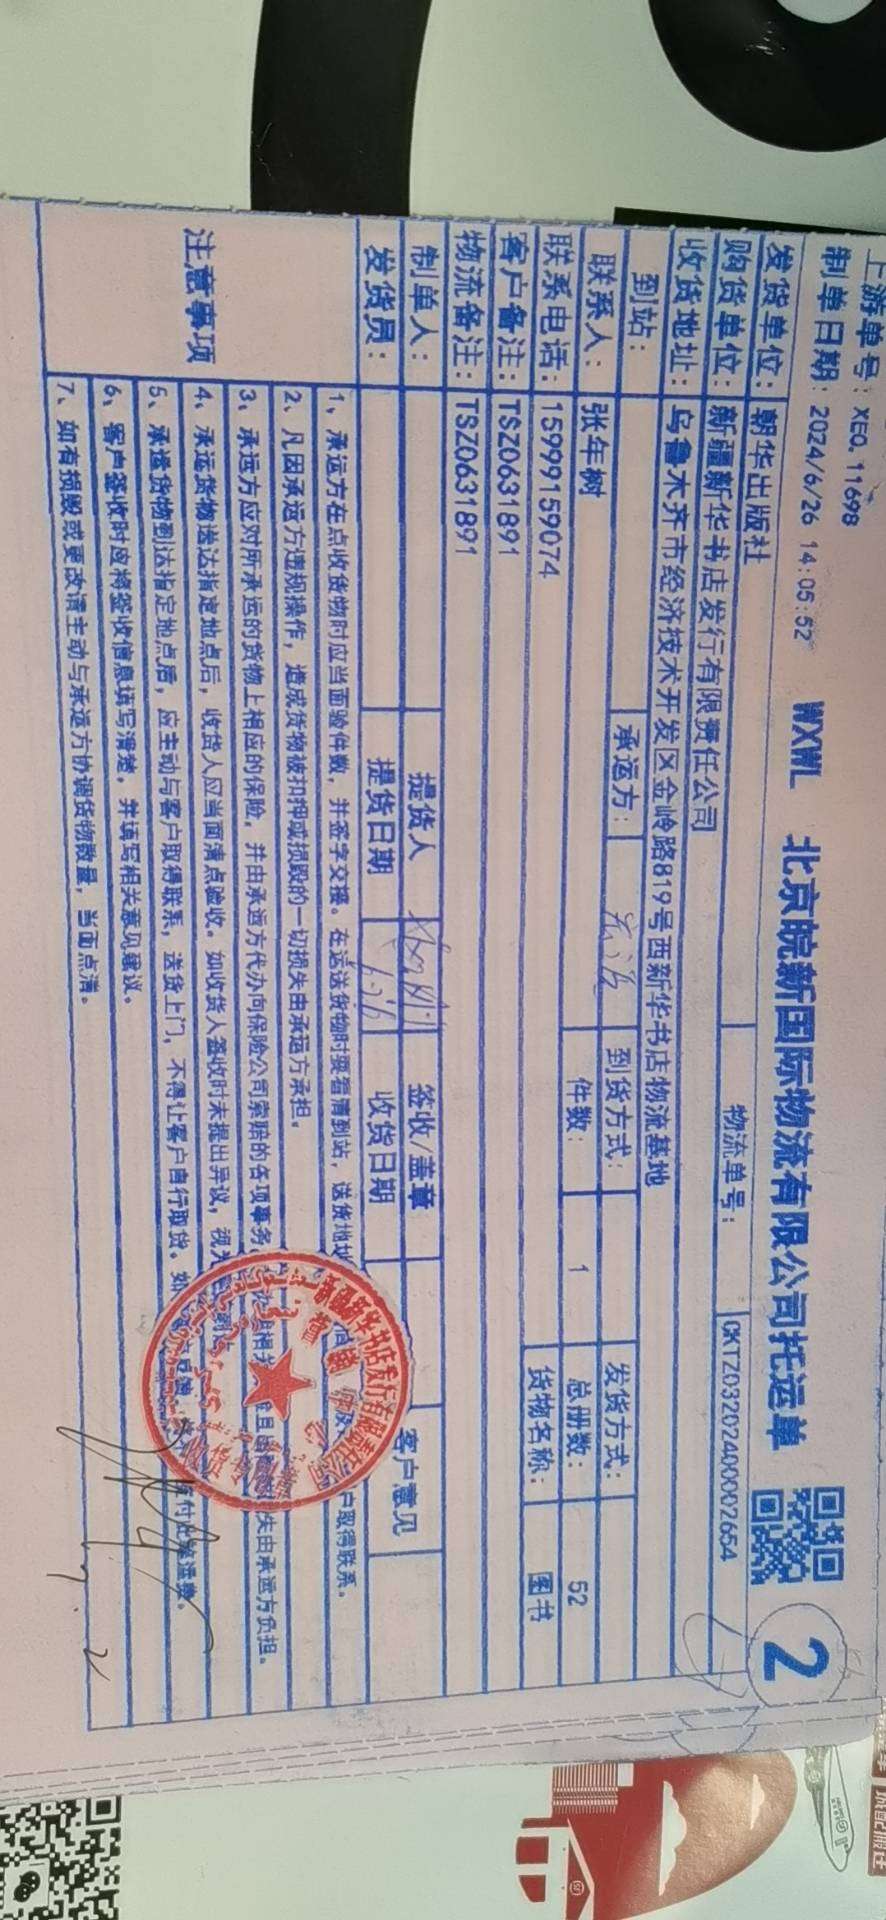 上游单号：XEQ.11698
制单日期：2024/6/26 14:05:52
WXWL 北京皖新国际物流有限公司托运单
2
发货单位：朝华出版社
物流单号：CKTZ03202400002654
购货单位：新疆新华书店发行有限责任公司
收货地址：乌鲁木齐市经济技术开发区金岭路819号西新华书店物流基地
到站： 承运方： 到货方式： 发货方式：
联系人：张年树 件数：1 总册数：52
联系电话：15999159074 货物名称：图书
客户备注：TSZ0631891
物流备注：TSZ0631891
制单人： 提货人 签收/盖章 客户意见
发货员： 提货日期 收货日期
注意事项
1、承运方在点收货物时应当面验件数，并签字交接。在运送货物时要看清到站，送货地址 户取得联系。
2、凡因承运方违规操作，造成货物被扣押或损毁的一切损失由承运方承担。
3、承运方应对所承运的货物上相应的保险，并由承运方代办向保险公司索赔的各项事务 失由承运方负担。
4、承运货物送达指定地点后，收货人应当面清点验收。如收货人签收时未提出异议，视为
5、承运货物到达指定地点后，应主动与客户取得联系，送货上门，不得让客户自行取货。如
6、客户签收时应将签收信息填写清楚，并填写相关意见建议。
7、如有损毁或更改请主动与承运方协调货物数量，当面点清。